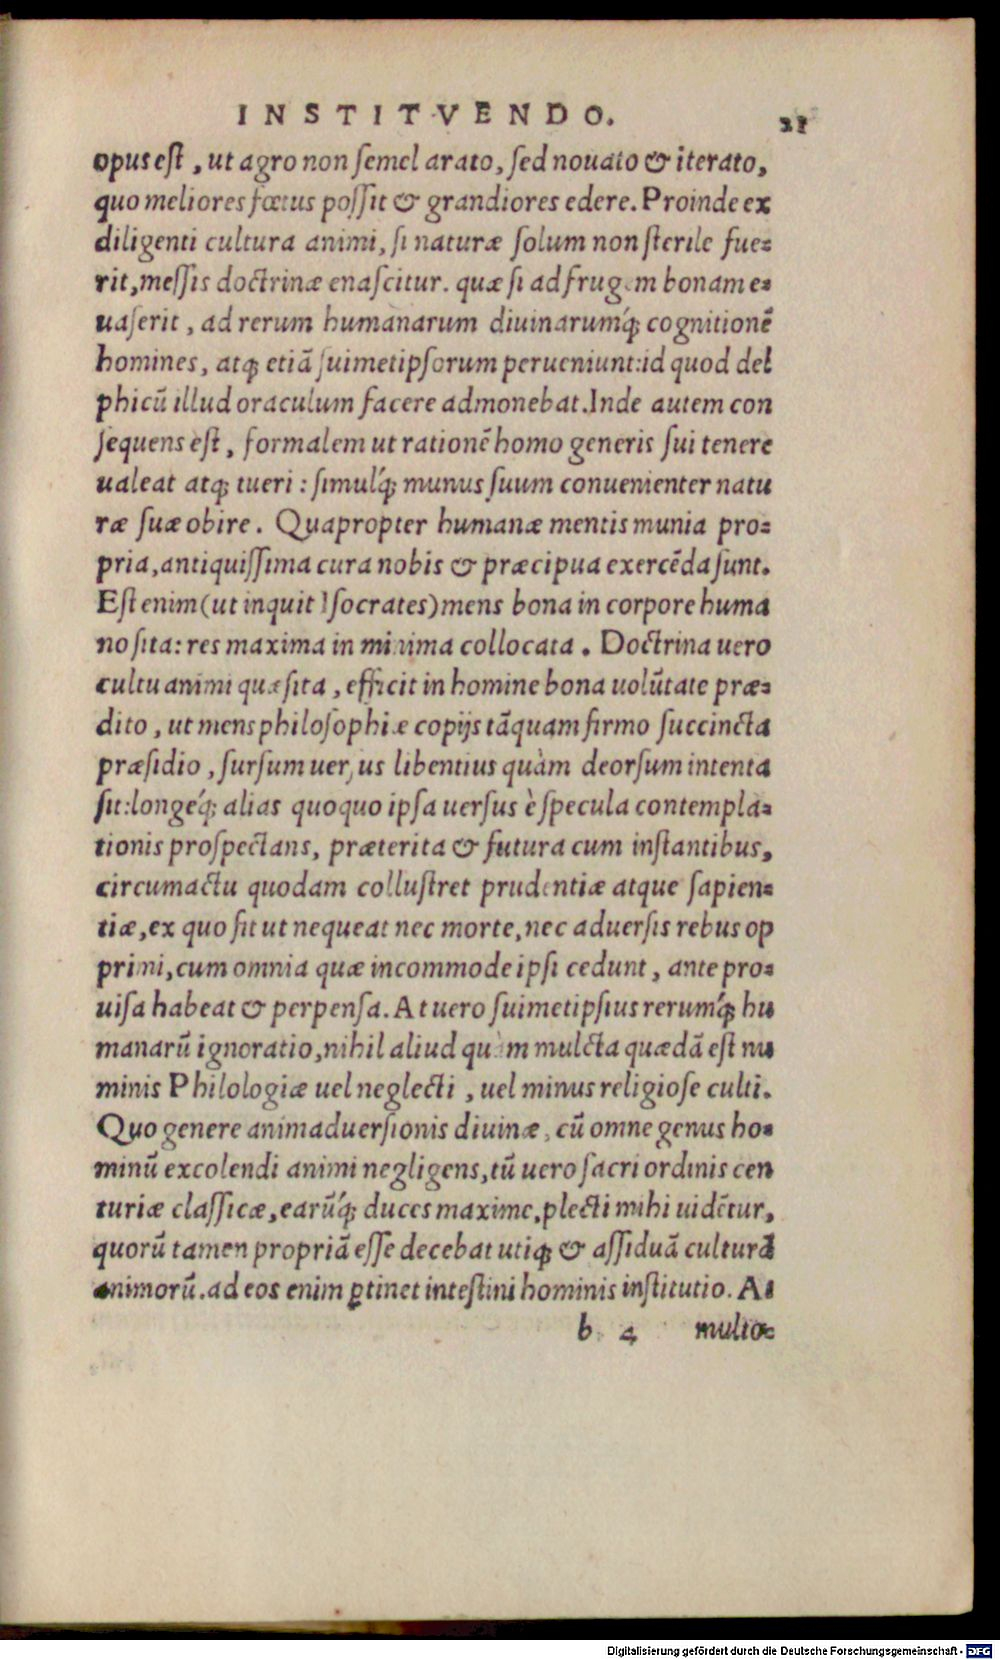 INSTITVENDO. 21
opus est, ut agro non ſemel arato, ſed nouato & iterato,
quo meliores fœtus poſſit & grandiores edere. Proinde ex
diligenti cultura animi, ſi naturæ ſolum non ſterile fue-
rit, meſſis doctrinæ enaſcitur. quæ ſi ad frugem bonam e-
uaſerit, ad rerum humanarum diuinarumq́ꝫ cognitionē
homines, atqꝫ etiā ſuimetipſorum perueniunt: id quod del
phicū illud oraculum facere admonebat. Inde autem con
ſequens eſt, formalem ut rationē homo generis ſui tenere
ualeat atqꝫ tueri: ſimulq́ꝫ munus ſuum conuenienter natu
ræ ſuæ obire. Quapropter humanæ mentis munia pro-
pria, antiquiſſima cura nobis & præcipua exercēda ſunt.
Eſt enim (ut inquit Iſocrates) mens bona in corpore huma
no ſita: res maxima in minima collocata. Doctrina uero
cultu animi quæſita, efficit in homine bona uolūtate præ-
dito, ut mens philoſophiæ copijs tāquam firmo ſuccincta
præſidio, ſurſum uerſus libentius quàm deorſum intenta
ſit: longeq́ꝫ alias quoquo ipſa uerſus è ſpecula contempla-
tionis proſpectans, præterita & futura cum inſtantibus,
circumactu quodam colluſtret prudentiæ atque ſapien-
tiæ, ex quo fit ut nequeat nec morte, nec aduerſis rebus op
primi, cum omnia quæ incommode ipſi cedunt, ante pro-
uiſa habeat & perpenſa. At uero ſuimetipſius rerumq́ꝫ hu
manarū ignoratio, nihil aliud quàm mulcta quædā eſt nu
minis Philologiæ uel neglecti, uel minus religioſe culti.
Quo genere animaduerſionis diuinæ, cū omne genus ho-
minū excolendi animi negligens, tū uero ſacri ordinis cen
turiæ claſſicæ, earūq́ꝫ duces maxime, plecti mihi uidētur,
quorū tamen propriā eſſe decebat utiqꝫ & aſſiduā culturā
animorū. ad eos enim ꝑtinet inteſtini hominis inſtitutio. At
b 4 multo-
Digitalisierung gefördert durch die Deutsche Forschungsgemeinschaft - DFG